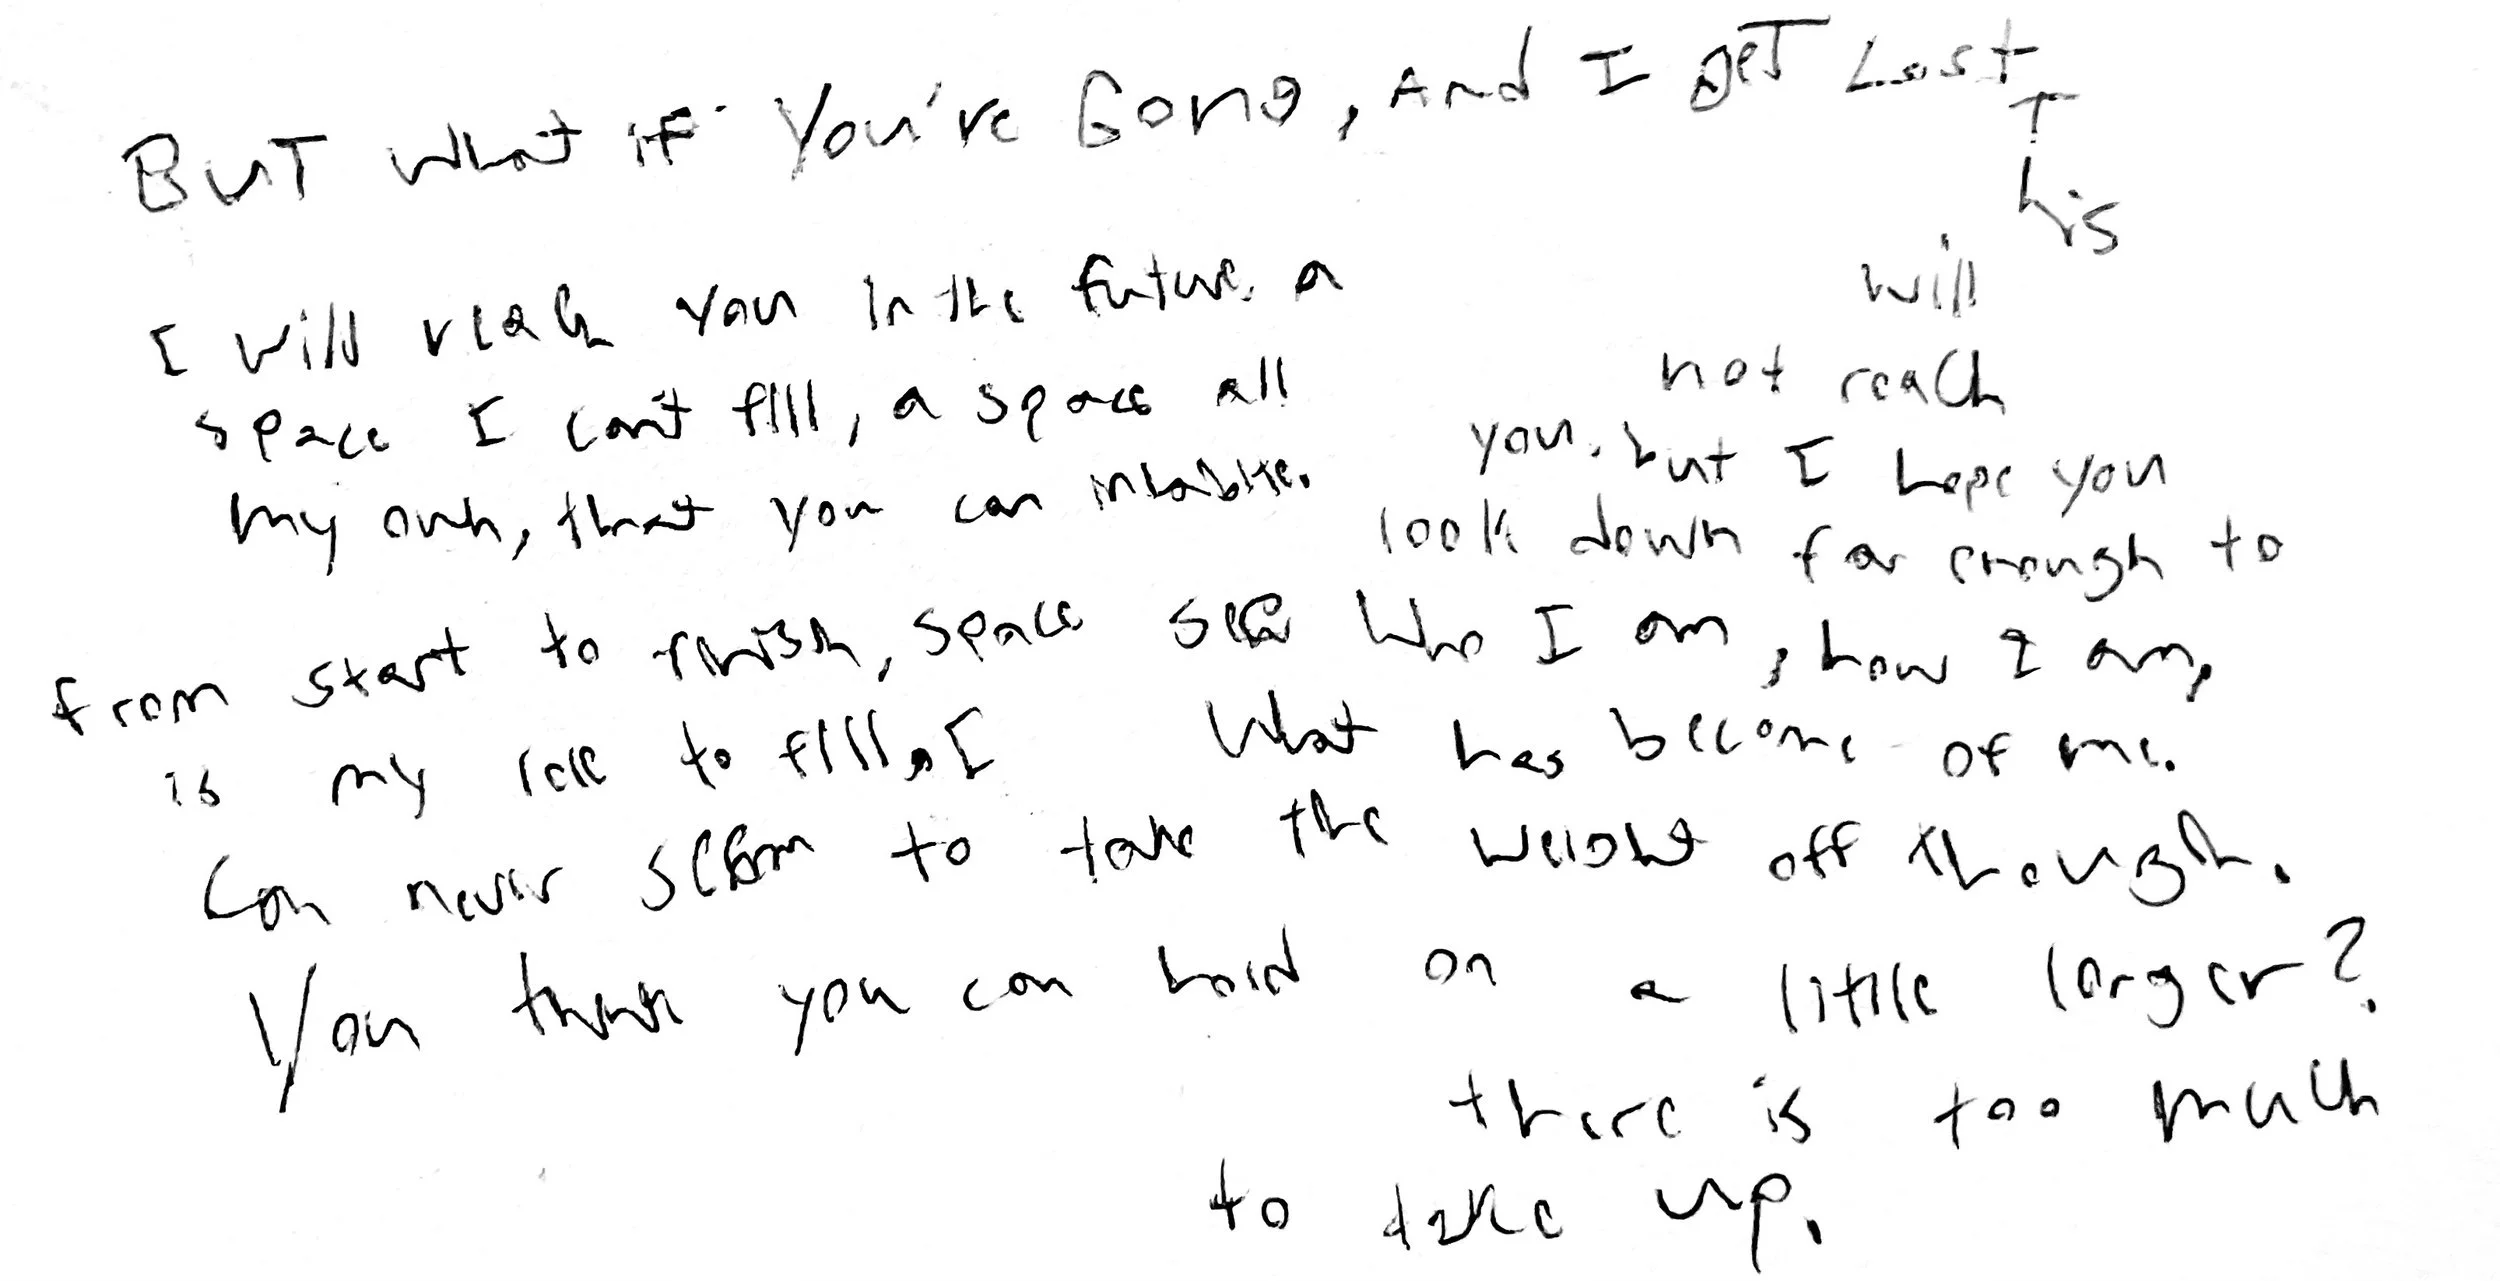 BUT what if You're Gone, And I get Lost,
I will reach you in the future. a
space I can't fill, a space all
my own, that you can inhabit.
from start to finish, space
is my to fill. I
This
will
not reach
you. but I hope you
look down far enough to
see who I am, how I am,
What has become of me.
Can never seem to take the weight off though.
You think you can hold on a little larger?
there is too much
to take up.